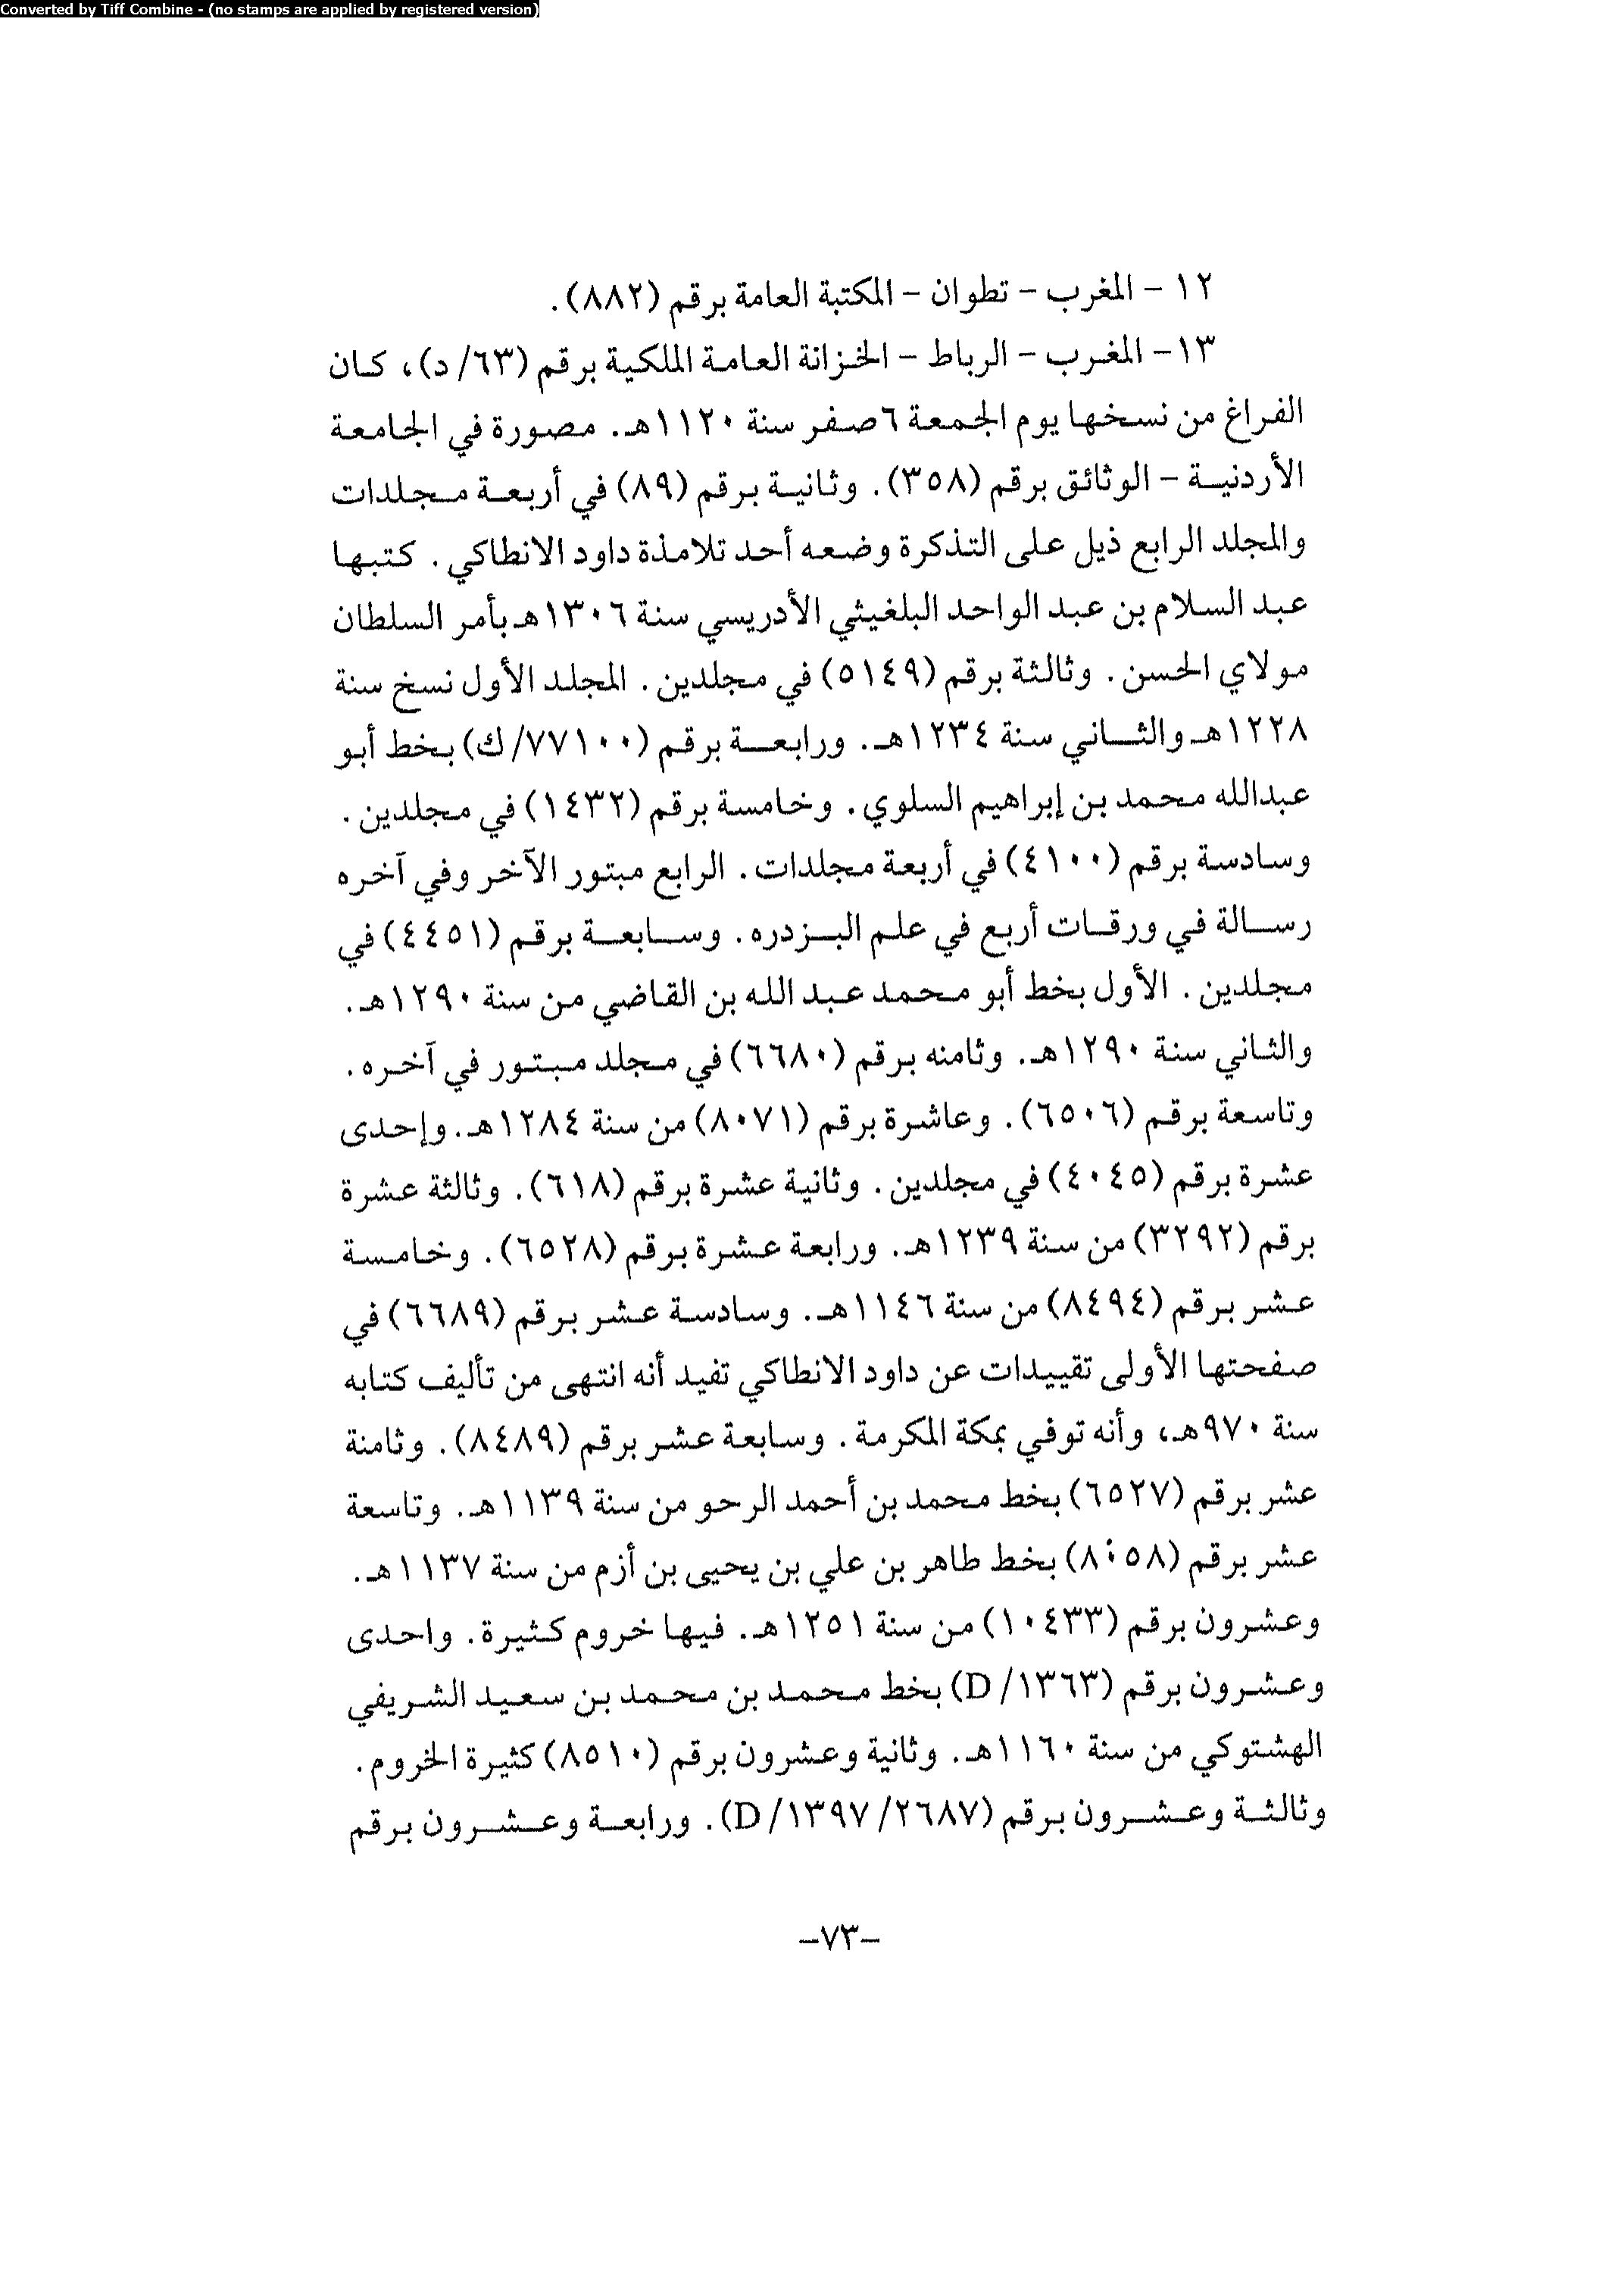 Converted by Tiff Combine - (no stamps are applied by registered version)
١٢ - المغرب - تطوان - المكتبة العامة برقم (٨٨٢).
١٣- المغرب - الرباط - الخزانة العامة الملكية برقم (٦٣/ د)، كان
الفراغ من نسخها يوم الجمعة ٦صفر سنة ١١٢٠هـ. مصورة في الجامعة
الأردنية - الوثائق برقم (٣٥٨). وثانية برقم (٨٩) في أربعة مجلدات
والمجلد الرابع ذيل على التذكرة وضعه أحد تلامذة داود الانطاكي. كتبها
عبد السلام بن عبد الواحد البلغيثي الأدريسي سنة ١٣٠٦هـ بأمر السلطان
مولاي الحسن. وثالثة برقم (٥١٤٩) في مجلدين. المجلد الأول نسخ سنة
١٢٢٨هـ والثاني سنة ١٢٣٤هـ. ورابعة برقم (٧٧١٠٠/ك) بخط أبو
عبدالله محمد بن إبراهيم السلوي. وخامسة برقم (١٤٣٢) في مجلدين.
وسادسة برقم (٤١٠٠) في أربعة مجلدات. الرابع مبتور الآخر وفي آخره
رسالة في ورقات أربع في علم البزدره. وسابعة برقم (٤٤٥١) في
مجلدين. الأول بخط أبو محمد عبد الله بن القاضي من سنة ١٢٩٠هـ.
والثاني سنة ١٢٩٠هـ. وثامنه برقم (٦٦٨٠) في مجلد مبتور في آخره.
وتاسعة برقم (٦٥٠٦). وعاشرة برقم (٨٠٧١) من سنة ١٢٨٤هـ. وإحدى
عشرة برقم (٤٠٤٥) في مجلدين. وثانية عشرة برقم (٦١٨). وثالثة عشرة
برقم (٣٢٩٢) من سنة ١٢٣٩هـ. ورابعة عشرة برقم (٦٥٢٨). وخامسة
عشر برقم (٨٤٩٤) من سنة ١١٤٦هـ. وسادسة عشر برقم (٦٦٨٩) في
صفحتها الأولى تقييدات عن داود الانطاكي تفيد أنه انتهى من تأليف كتابه
سنة ٩٧٠هـ، وأنه توفي بمكة المكرمة. وسابعة عشر برقم (٨٤٨٩). وثامنة
عشر برقم (٦٥٢٧) بخط محمد بن أحمد الرحو من سنة ١١٣٩هـ. وتاسعة
عشر برقم (٨٠٥٨) بخط طاهر بن علي بن يحيى بن أزم من سنة ١١٣٧هـ.
وعشرون برقم (١٠٤٣٣) من سنة ١٢٥١هـ. فيها خروم كثيرة. واحدى
وعشرون برقم (١٣٦٣/ D) بخط محمد بن محمد بن سعيد الشريفي
الهشتوكي من سنة ١١٦٠هـ. وثانية وعشرون برقم (٨٥١٠) كثيرة الخروم.
وثالثة وعشرون برقم (٢٦٨٧/ ١٣٩٧/D). ورابعة وعشرون برقم
-٧٣-